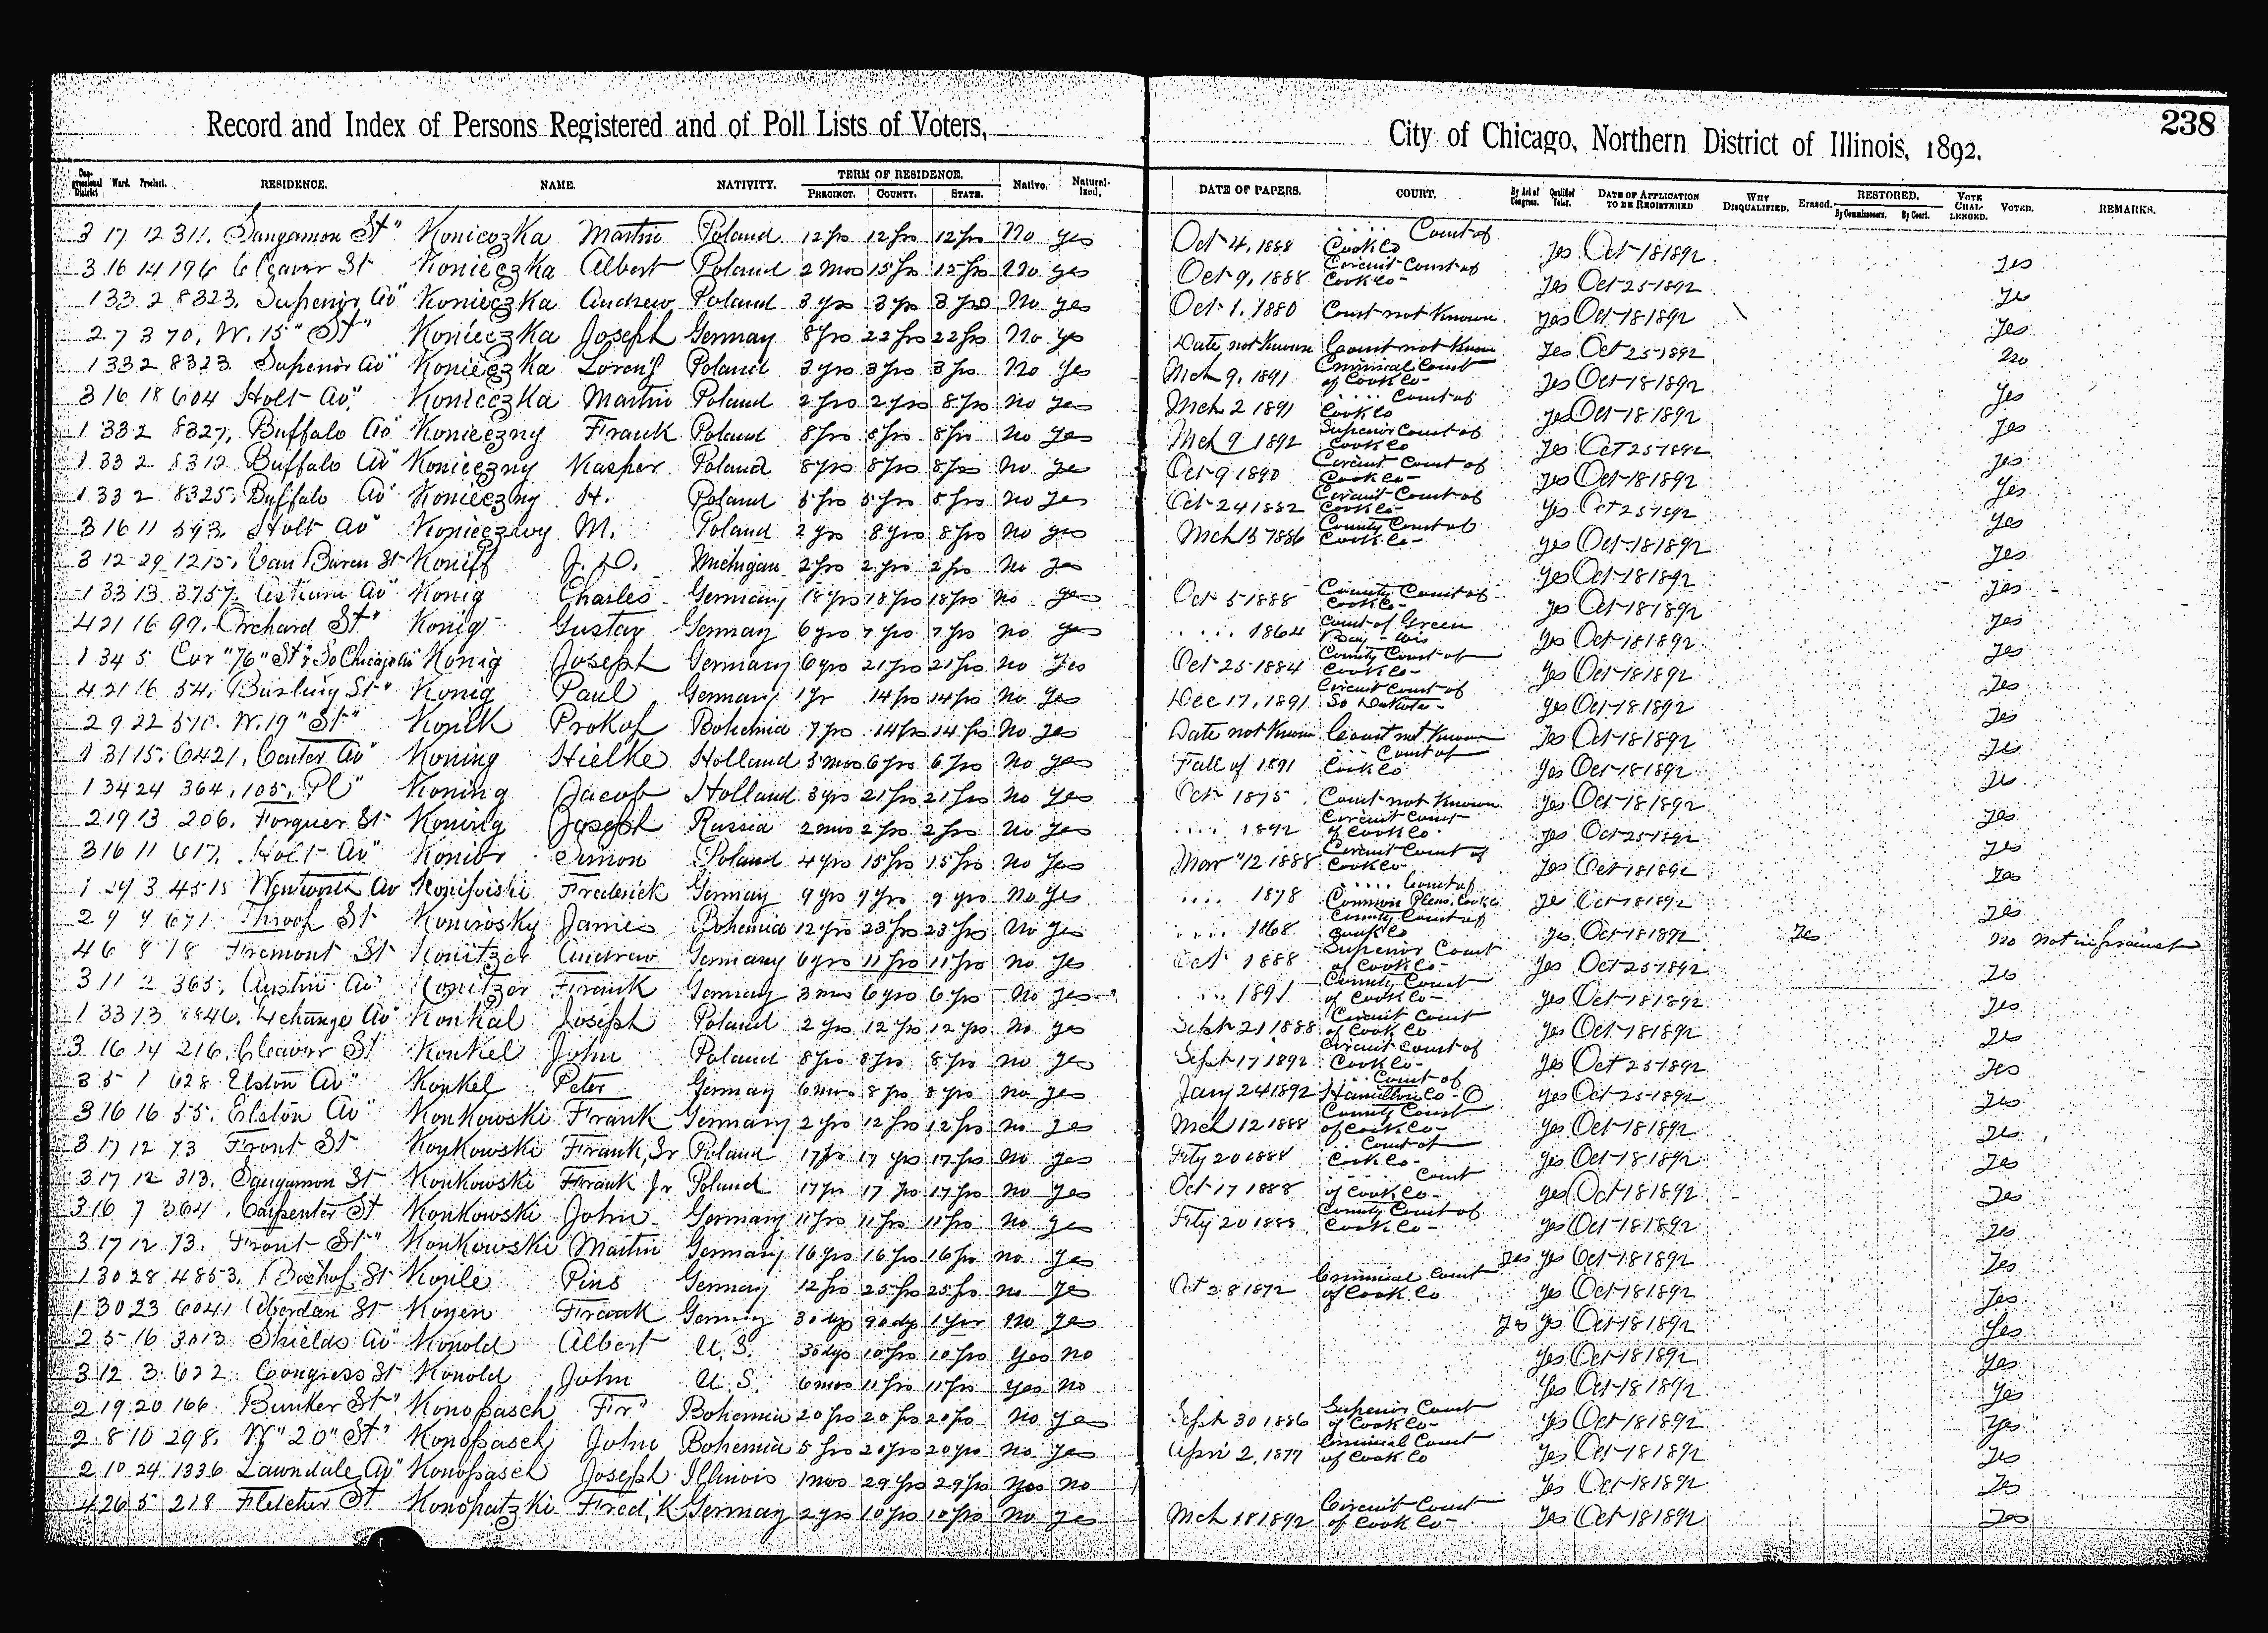 Record and Index of Persons Registered and of Poll Lists of Voters,
City of Chicago, Northern District of Illinois, 1892.
238
Congressional District Ward. Precinct. RESIDENCE. NAME. NATIVITY. TERM OF RESIDENCE. PRECINCT. COUNTY. STATE. Native. Naturalized.
DATE OF PAPERS. COURT. By Act of Congress. Qualified Voter. DATE OF APPLICATION TO BE REGISTERED WHY DISQUALIFIED. Erased. RESTORED. By Commissioners. By Court. VOTE CHALLENGED. VOTED. REMARKS.
3 17 12 311. Sangamon St" Konieczka Martin Poland 12 yrs 12 yrs 12 yrs No yes Oct 4, 1888 .... Court of Cook Co Yes Oct 18 1892 Yes
3 16 14 196 Cleaver St Konieczka Albert Poland 2 mos 15 yrs 15 yrs No yes Oct 9, 1888 Circuit Court of Cook Co Yes Oct 25 1892 Yes
1 33 2 8323. Superior Av" Konieczka Andrew Poland 3 yrs 3 yrs 3 yrs No yes Oct 1, 1880 Court not Known Yes Oct 18 1892 Yes
2 7 3 70, W. 15" St" Konieczka Joseph Germay 8 yrs 22 yrs 22 yrs No yes Date not Known Court not Known Yes Oct 25 1892 No
1 33 2 8323 Superior Av" Konieczka Poland 3 yrs 3 yrs 3 yrs No Yes Mch 9, 1891 Criminal Court of Cook Co Yes Oct 18 1892 Yes
3 16 18 604 Holt Av" Konieczka Martin Poland 2 yrs 2 yrs 8 yrs No Yes Mch 2 1891 .... Court of Cook Co Yes Oct 18 1892 Yes
1 33 2 8327, Buffalo Av" Konieczny Frank Poland 8 yrs 8 yrs 8 yrs No Yes Mch 9 1892 Superior Court of Cook Co Yes Oct 25 1892 Yes
1 33 2 8312 Buffalo Av" Konieczny Kasper Poland 8 yrs 8 yrs 8 yrs No Yes Oct 9 1890 Circuit Court of Cook Co Yes Oct 18 1892 Yes
1 33 2 8325, Buffalo Av" Konieczny H. Poland 5 yrs 5 yrs 5 yrs No Yes Oct 24 1882 Circuit Court of Cook Co Yes Oct 25 1892 Yes
3 16 11 593. Holt Av" M. Poland 2 yrs 8 yrs 8 yrs No yes Mch 1886 County Court of Cook Co Yes Oct 18 1892 Yes
3 12 29 1215, Van Buren St Koniff J. D. Michigan 2 yrs 2 yrs 2 yrs No Yes Yes Oct 18 1892 Yes
1 33 13 3757. Av" Konig Charles Germany 18 yrs 18 yrs 18 yrs No yes Oct 5 1888 County Court of Cook Co Yes Oct 18 1892 Yes
4 21 16 97. Orchard St" Konig Gustav Germay 6 yrs 7 yrs 7 yrs No yes .... 1864 Court of Green Bay - Wis Yes Oct 18 1892 Yes
1 34 5 Cor "76" St" & So Chicago Av" Konig Joseph Germany 6 yrs 21 yrs 21 yrs No Yes Oct 25 1884 County Court of Cook Co Yes Oct 18 1892 Yes
4 21 16 54. Burling St" Konig Paul Germany 1 yr 14 yrs 14 yrs No Yes Dec 17, 1891 Circuit Court of So Dakota Yes Oct 18 1892 Yes
2 9 22 570. W. 19" St" Konik Prokop Bohemia 7 yrs 14 yrs 14 yrs No Yes Date not Known Court not Known Yes Oct 18 1892 Yes
1 31 15. 6421, Center Av" Koning Hielke Holland 5 mos 6 yrs 6 yrs No yes Fall of 1891 .... Court of Cook Co Yes Oct 18 1892 Yes
1 34 24 364. 105. Pl" Koning Jacob Holland 3 yrs 21 yrs 21 yrs No Yes Oct 1875 Court not Known Yes Oct 18 1892 Yes
2 19 13 206. Forquer St Koning Joseph Russia 2 mos 2 yrs 2 yrs No Yes .... 1892 Circuit Court of Cook Co Yes Oct 25 1892 Yes
3 16 11 617. Holt Av" Konior Simon Poland 4 yrs 15 yrs 15 yrs No Yes Mar "12 1888 Circuit Court of Cook Co Yes Oct 18 1892 Yes
1 29 3 4515 Wentworth Av Frederick Germay 9 yrs 9 yrs 9 yrs No Yes .... 1878 .... Court of Common Pleas, Cook Co Yes Oct 18 1892 Yes
2 9 9 671 Throop St Konirosky James Bohemia 12 yrs 23 yrs 23 yrs No Yes .... 1868 County Court of Cook Co Yes Oct 18 1892 Yes No Not in precinct
4 6 8 18 Fremont St Konitzer Andrew Germany 6 yrs 11 yrs 11 yrs No Yes Oct 1888 Superior Court of Cook Co Yes Oct 25 1892 Yes
3 11 2 365. Austin Av" Konitzer Frank Germay 3 mos 6 yrs 6 yrs No Yes .... 1891 County Court of Cook Co Yes Oct 18 1892 Yes
1 33 13 8846. Exchange Av" Konkal Joseph Poland 2 yrs 12 yrs 12 yrs No yes Sept 21 1888 Circuit Court of Cook Co Yes Oct 18 1892 Yes
3 16 14 216. Cleaver St Konkel John Poland 8 yrs 8 yrs 8 yrs No Yes Sept 17 1892 Circuit Court of Cook Co Yes Oct 25 1892 Yes
3 5 1 628 Elston Av" Konkel Peter Germay 6 mos 8 yrs 8 yrs No Yes Jany 24 1892 .... Court of Hamilton Co - O Yes Oct 25 1892 Yes
3 16 16 55. Elston Av" Konkowski Frank Germany 2 yrs 12 yrs 12 yrs No Yes Mch 12 1888 County Court of Cook Co Yes Oct 18 1892 Yes
3 17 12 73 Front St Konkowski Frank, Sr Poland 17 yrs 17 yrs 17 yrs No Yes Feby 20 1888 ... Court of Cook Co Yes Oct 18 1892 Yes
3 17 12 313. Sangamon St Konkowski Frank Jr Poland 17 yrs 17 yrs 17 yrs No Yes Oct 17 1888 .... Court of Cook Co Yes Oct 18 1892 Yes
3 16 7 364. Carpenter St Konkowski John Germany 11 yrs 11 yrs 11 yrs No yes Feby 20 1888 County Court of Cook Co Yes Oct 18 1892 Yes
3 17 12 73. Front St" Konkowski Martin Germany 16 yrs 16 yrs 16 yrs No Yes Yes Yes Oct 18 1892 Yes
1 30 28 4853. Bishop St Konle Pius Germay 12 yrs 25 yrs 25 yrs No Yes Oct 28 1872 Criminal Court of Cook Co Yes Oct 18 1892 Yes
1 30 23 6041 Aberdan St Konen Frank Germany 30 dys 90 dys 1 year No Yes Yes Yes Oct 18 1892 Yes
2 5 16 3013 Shields Av" Konold Albert U. S. 30 dys 10 yrs 10 yrs Yes No Yes Oct 18 1892 Yes
3 12 3 622 Congress St Konold John U. S. 6 mos 11 yrs 11 yrs Yes No Yes Oct 18 1892 Yes
2 19 20 166 Bunker St" Konopasek Fr" Bohemia 20 yrs 20 yrs 20 yrs No Yes Sept 30 1886 Superior Court of Cook Co Yes Oct 18 1892 Yes
2 8 10 298. W "20" St" Konopasek John Bohemia 5 yrs 20 yrs 20 yrs No Yes Apri 2, 1877 Criminal Court of Cook Co Yes Oct 18 1892 Yes
2 10 24 1336 Lawndale Av" Konopasek Joseph Illinois 1 mos 29 yrs 29 yrs Yes No Yes Oct 18 1892 Yes
4 26 5 218 Fletcher St Konopatzki Fred,'k Germay 2 yrs 10 yrs 10 yrs No Yes Mch 18 1892 Circuit Court of Cook Co Yes Oct 18 1892 Yes